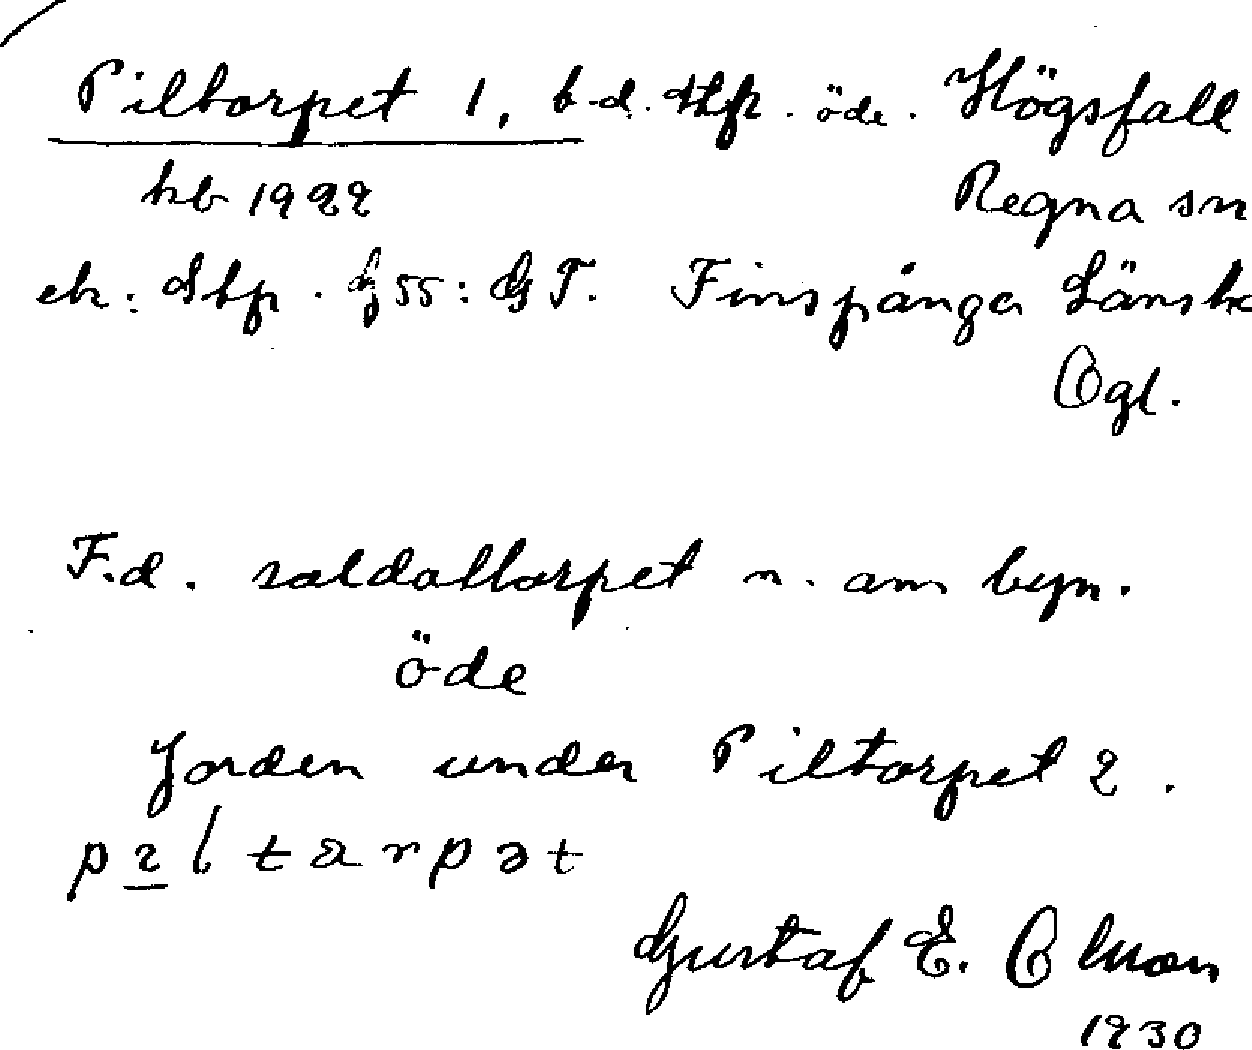 Piltorpet 1, b.d. thp. öde. Högsfall
kb 1922 Regna sn
ek: Stp. 55: GT. Finspånga Länsh
Ögl.
F.d. soldattorpet n. om byn.
öde
Jorden under Piltorpet 2.
Gustaf E. Olman
1930